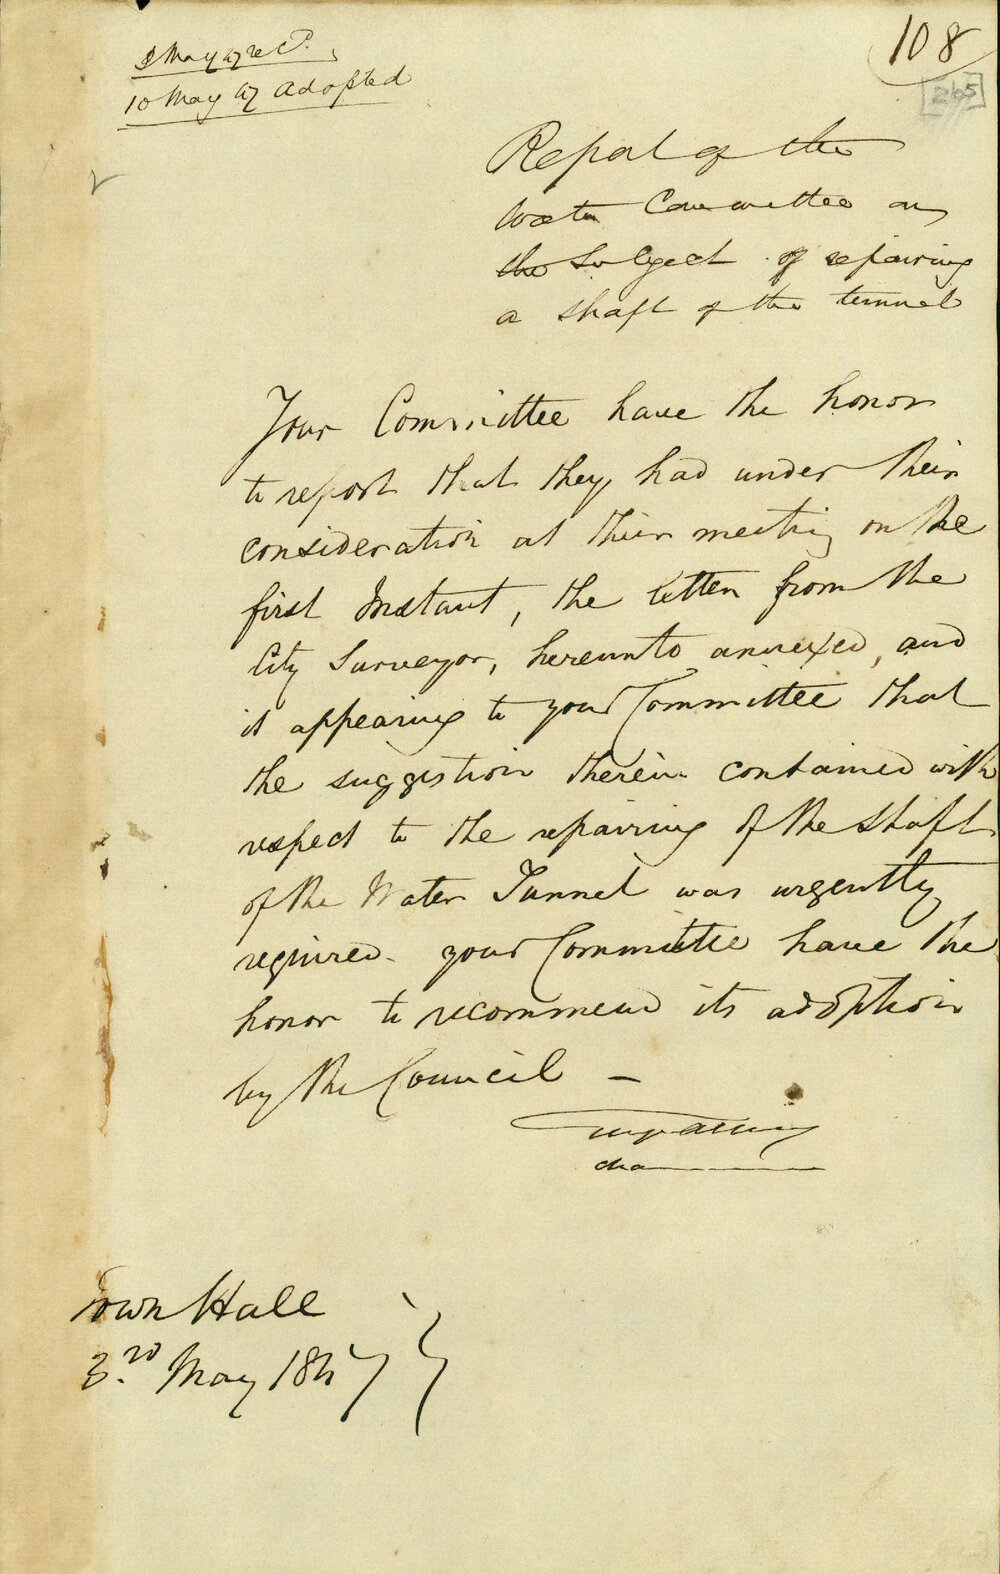 108
265
3 May 47 recd.
10 May 47 Adopted
Report of the
Water Committee on
the Subject of repairing
a shaft of the tunnel
Your Committee have the honor
to report that they had under their
consideration at their meeting on the
first Instant, the letter from the
City Surveyor, hereunto annexed, and
it appearing to your Committee that
the suggestion therein contained with
respect to the repairing of the shaft
of the Water Tunnel was urgently
required - your Committee have the
honor to recommend its adoption
by the Council -
Cha
Town Hall
3.rd May 1847